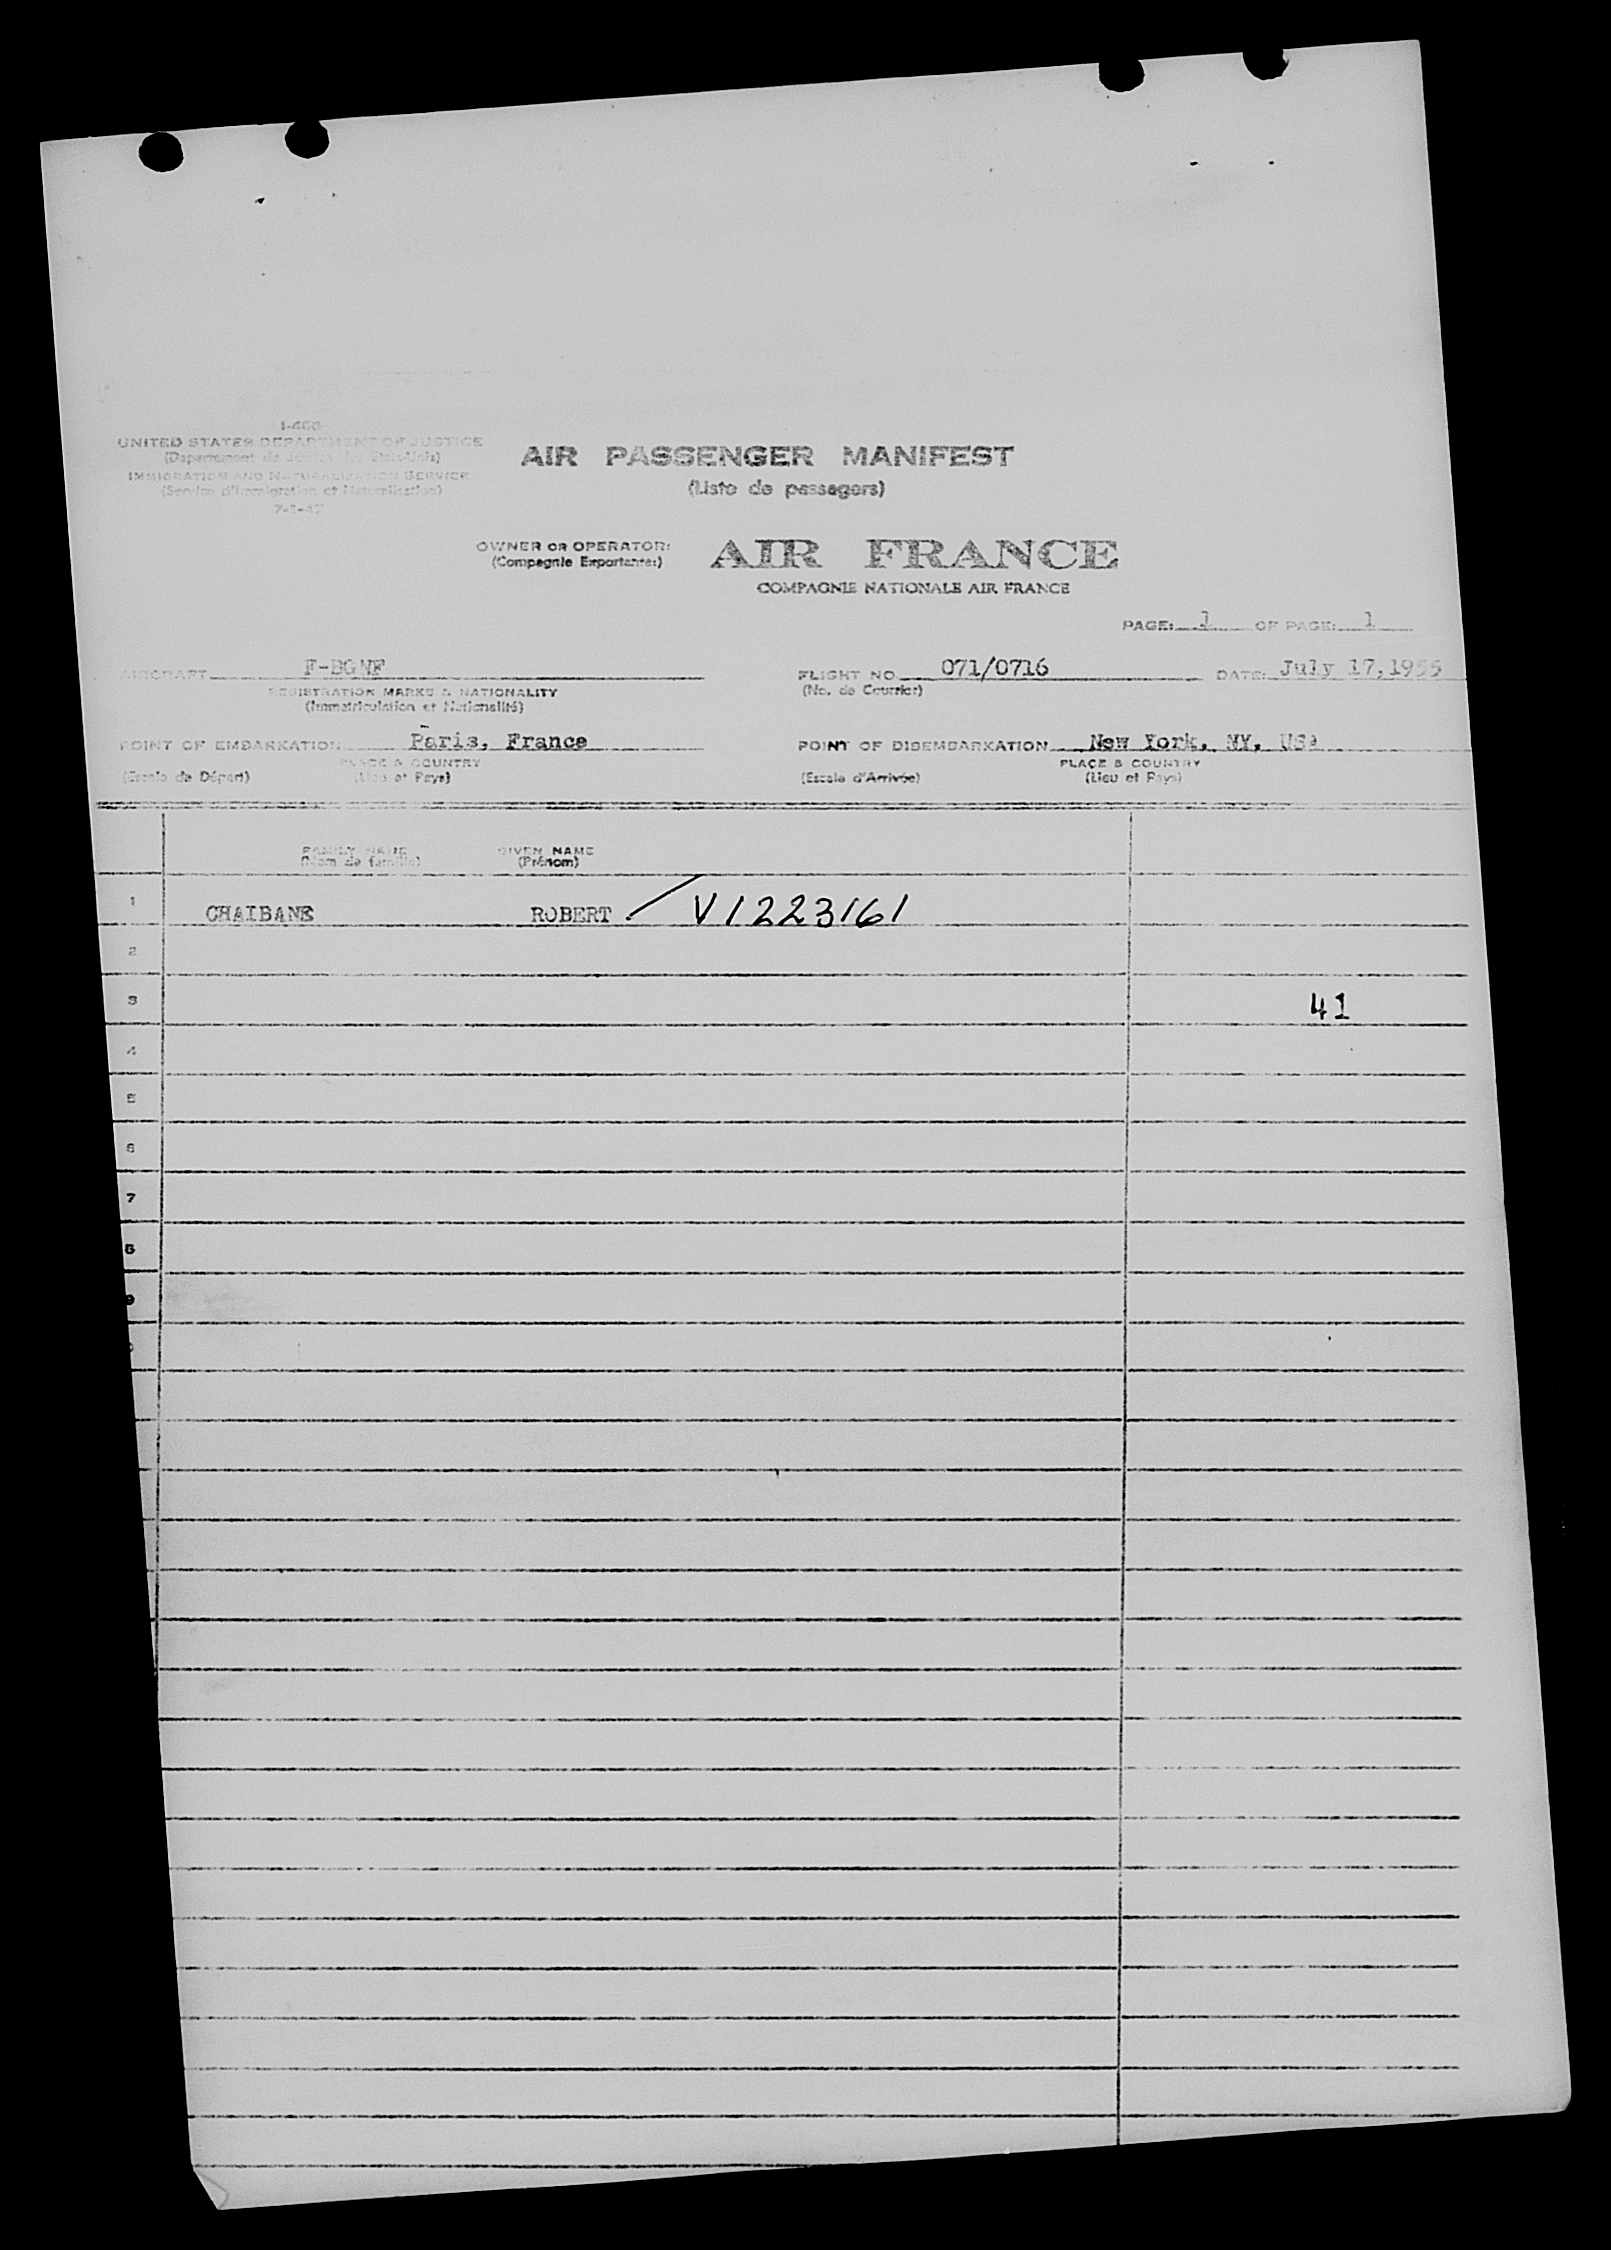 I-466
UNITED STATES DEPARTMENT OF JUSTICE
IMMIGRATION AND NATURALIZATION SERVICE
(Service d'Immigration et Naturalisation)
AIR PASSENGER MANIFEST
(Liste de passagers)
OWNER OR OPERATOR: AIR FRANCE
(Compagnie Exportante:)
COMPAGNIE NATIONALE AIR FRANCE
PAGE: 1 OF PAGE: 1
AIRCRAFT F-BGNF FLIGHT NO. 071/0716 DATE: July 17,1955
REGISTRATION MARKS & NATIONALITY (No. de Courrier)
(Immatriculation et Nationalité)
POINT OF EMBARKATION Paris, France POINT OF DISEMBARKATION New York, NY, USA
PLACE & COUNTRY PLACE & COUNTRY
(Escale de Départ) (Lieu et Pays) (Escale d'Arrivée) (Lieu et Pays)
FAMILY NAME GIVEN NAME
(Nom de famille) (Prénom)
1 CHAIBANE ROBERT / V1223161
2
3 41
4
5
6
7
8
9